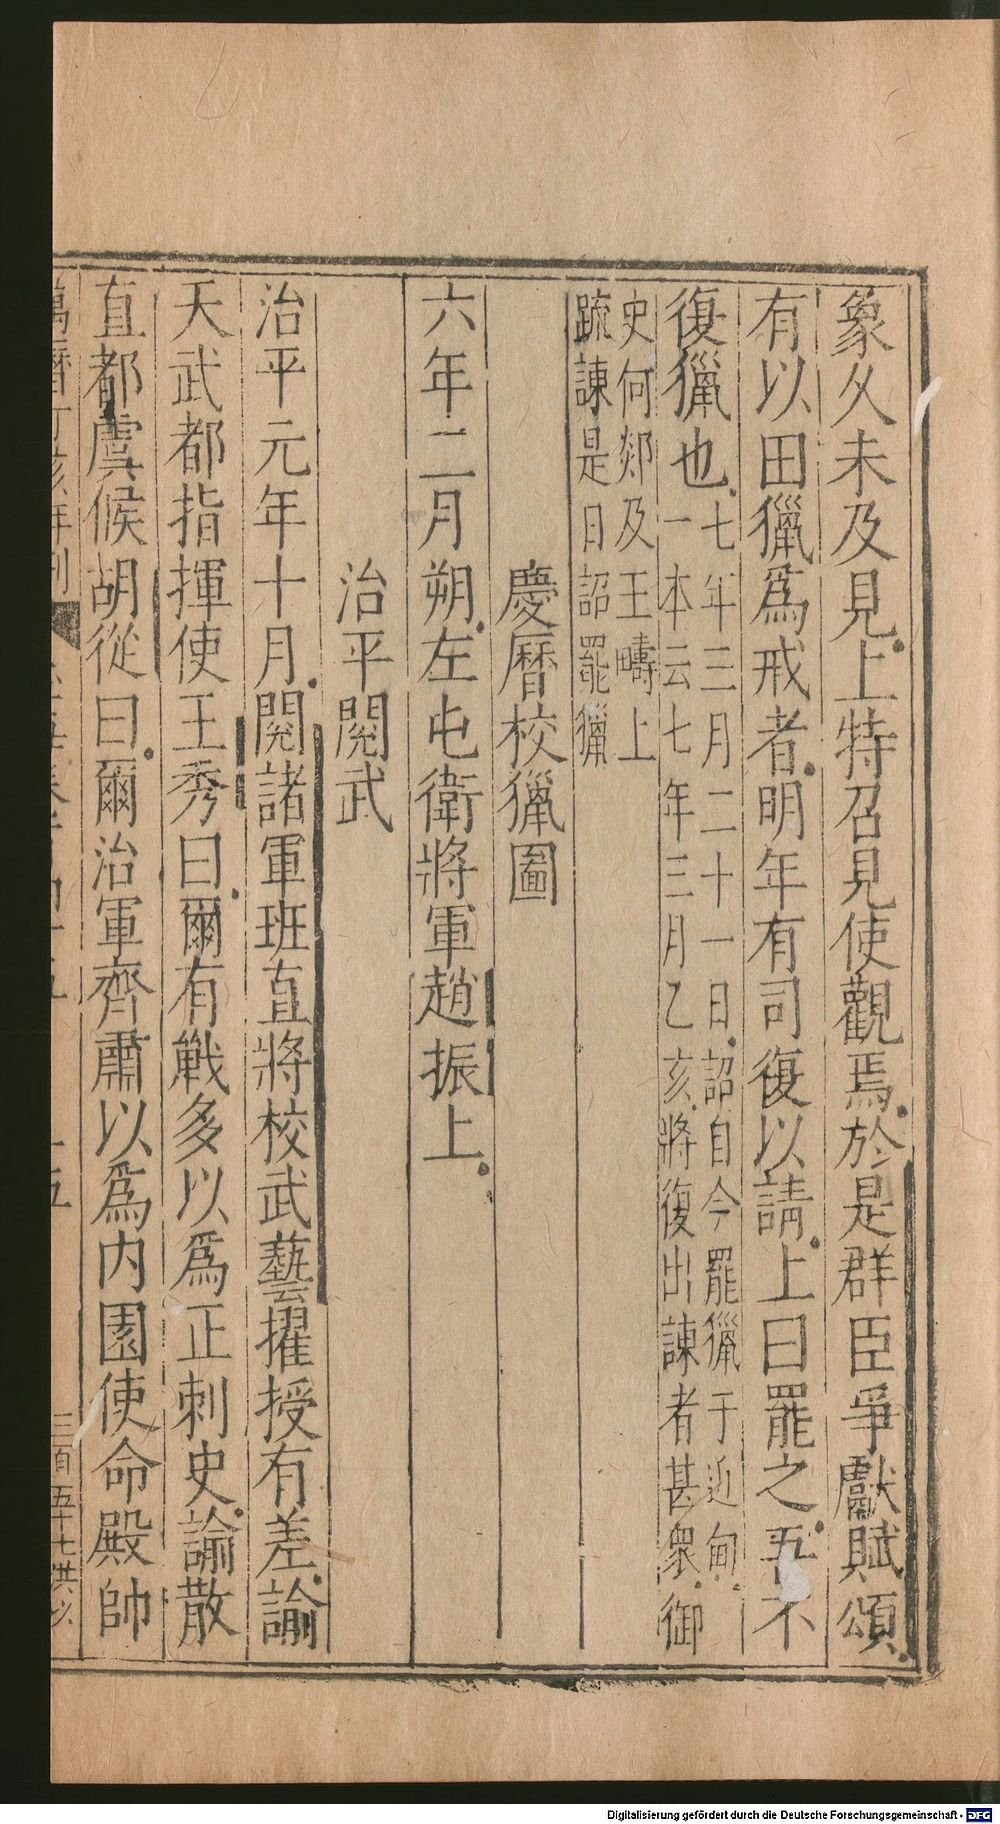 象久未及見上特召見使觀焉於是群臣爭獻賦頌
有以田獵爲戒者明年有司復以請上曰罷之吾不
復獵也七年三月二十一日詔自今罷獵于近甸
一本云七年三月乙亥將復出諫者甚衆御
史何郯及王疇上
疏諫是日詔罷獵
慶曆校獵圖
六年二月朔左屯衛將軍趙振上
治平閱武
治平元年十月閱諸軍班直將校武藝擢授有差諭
天武都指揮使王秀曰爾有戰多以爲正刺史諭散
直都虞候胡從曰爾治軍齊肅以爲內園使命殿帥
萬曆丁亥年刊
三百五十七洪以
Digitalisierung gefördert durch die Deutsche Forschungsgemeinschaft - DFG